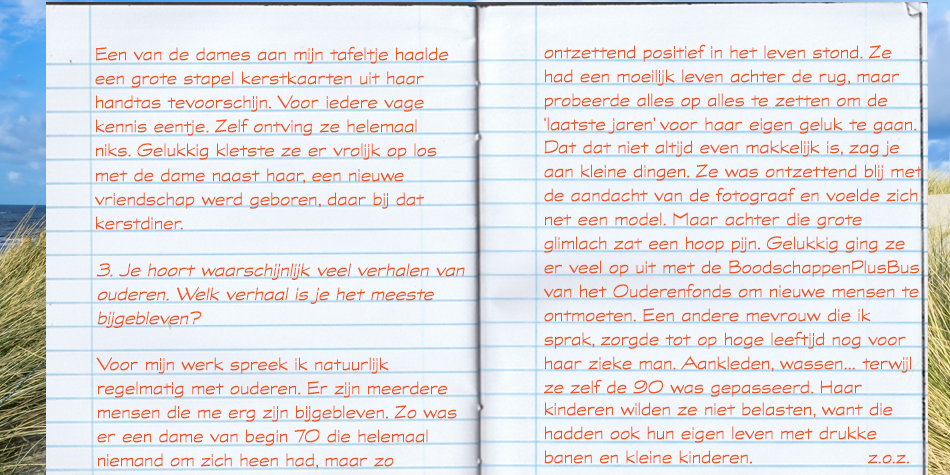 Een van de dames aan mijn tafeltje haalde
een grote stapel kerstkaarten uit haar
handtas tevoorschijn. Voor iedere vage
kennis eentje. Zelf ontving ze helemaal
niks. Gelukkig kletste ze er vrolijk op los
met de dame naast haar, een nieuwe
vriendschap werd geboren, daar bij dat
kerstdiner.

3. Je hoort waarschijnlijk veel verhalen van
ouderen. Welk verhaal is je het meeste
bijgebleven?

Voor mijn werk spreek ik natuurlijk
regelmatig met ouderen. Er zijn meerdere
mensen die me erg zijn bijgebleven. Zo was
er een dame van begin 70 die helemaal
niemand om zich heen had, maar zo
ontzettend positief in het leven stond. Ze
had een moeilijk leven achter de rug, maar
probeerde alles op alles te zetten om de
'laatste jaren' voor haar eigen geluk te gaan.
Dat dat niet altijd even makkelijk is, zag je
aan kleine dingen. Ze was ontzettend blij met
de aandacht van de fotograaf en voelde zich
net een model. Maar achter die grote
glimlach zat een hoop pijn. Gelukkig ging ze
er veel op uit met de BoodschappenPlusBus
van het Ouderenfonds om nieuwe mensen te
ontmoeten. Een andere mevrouw die ik
sprak, zorgde tot op hoge leeftijd nog voor
haar zieke man. Aankleden, wassen... terwijl
ze zelf de 90 was gepasseerd. Haar
kinderen wilden ze niet belasten, want die
hadden ook hun eigen leven met drukke
banen en kleine kinderen. z.o.z.